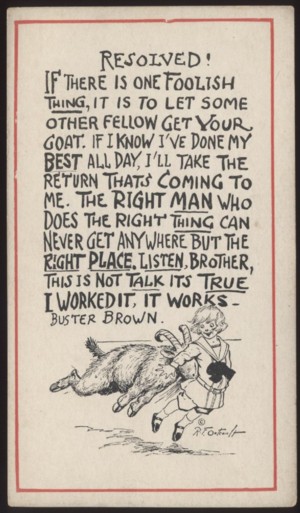 RESOLVED!
IF THERE IS ONE FOOLISH
THING, IT IS TO LET SOME
OTHER FELLOW GET YOUR
GOAT. IF I KNOW I'VE DONE MY
BEST ALL DAY, I'LL TAKE THE
RETURN THATS COMING TO
ME. THE RIGHT MAN WHO
DOES THE RIGHT THING CAN
NEVER GET ANYWHERE BUT THE
RIGHT PLACE. LISTEN, BROTHER,
THIS IS NOT TALK ITS TRUE
I WORKED IT, IT WORKS–
BUSTER BROWN.
©
R.F. Outcault